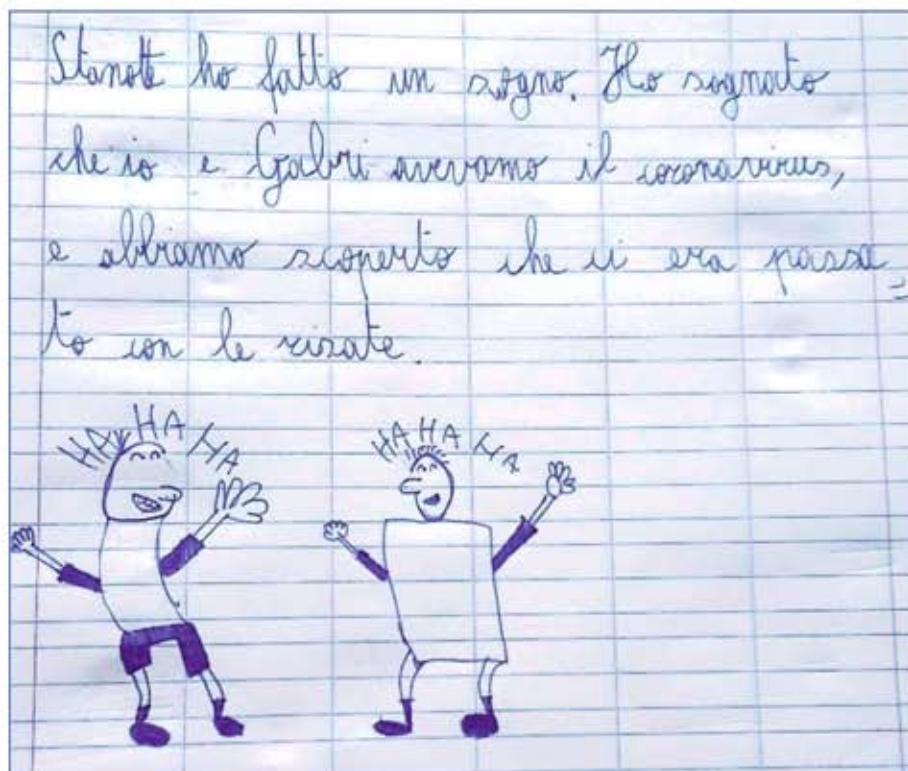 Stanotte ho fatto un sogno. Ho sognato
che io e Gabri avevamo il coronavirus,
e abbiamo scoperto che ci era passa=
to con le risate.
HA HA HA
HA HA HA